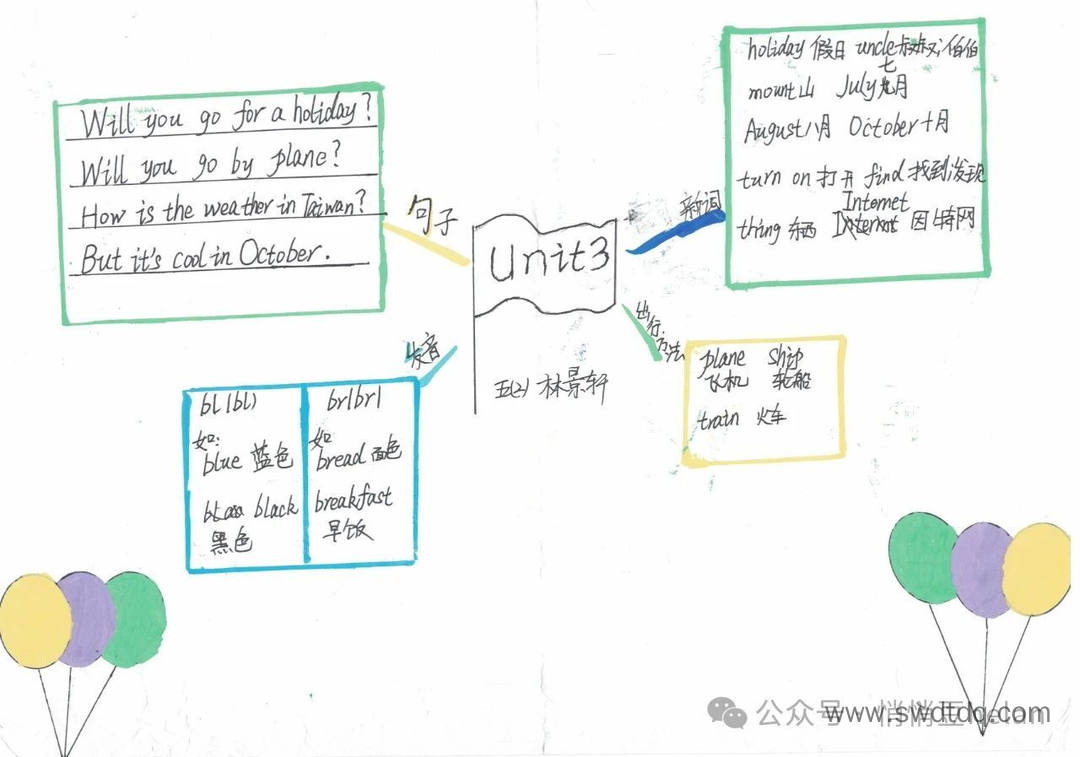 Will you go for a holiday?
Will you go by plane?
How is the weather in Taiwan?
But it's cool in October.
句子
Unit3
五(2) 林景轩
新词
holiday 假日 uncle 叔叔,伯伯
mount 山 July 七月
August 八月 October 十月
turn on 打开 find 找到发现
thing 东西 Internet 因特网
出行方法
plane ship
飞机 轮船
train 火车
发音
bl|bl|
如:
blue 蓝色
black
黑色
br|br|
如
bread 面色
breakfast
早饭
公众号
www.swdtdq.com